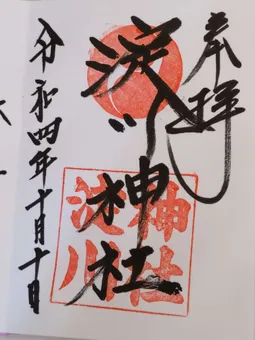 奉拝
淀川神社
淀川神社
令和四年十月十日